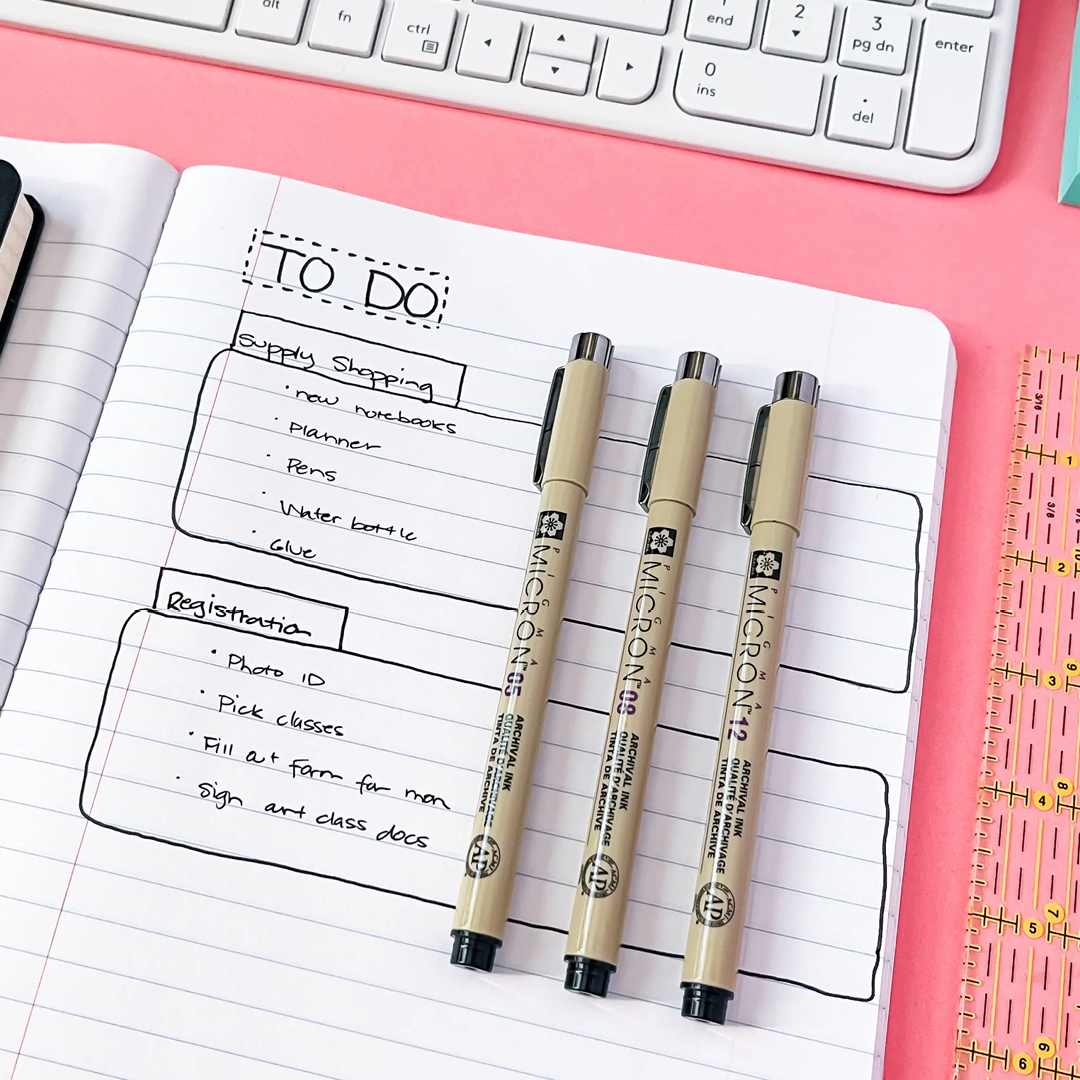 alt
fn
ctrl
1
end
2
3
pg dn
enter
0
ins
.
del
TO DO
Supply Shopping
• new notebooks
• Planner
• Pens
• Water bottle
• Glue
Registration
• Photo ID
• Pick classes
• Fill out form for mon
• Sign art class docs
PIGMA
MICRON™ 05
ARCHIVAL INK
QUALITÉ D'ARCHIVAGE
TINTA DE ARCHIVE
AP
PIGMA
MICRON™ 08
ARCHIVAL INK
QUALITÉ D'ARCHIVAGE
TINTA DE ARCHIVE
AP
PIGMA
MICRON™ 12
ARCHIVAL INK
QUALITÉ D'ARCHIVAGE
TINTA DE ARCHIVE
AP
3/8
1
3/8
2
9
3
8
4
7
5
6
6